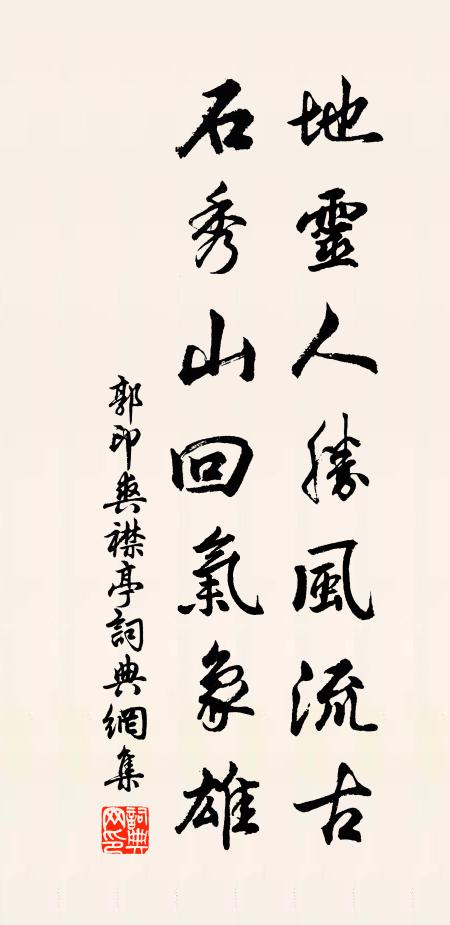 地靈人勝風流古
石秀山回氣象雄
郭印爽襟亭詞典網集
詞典網印